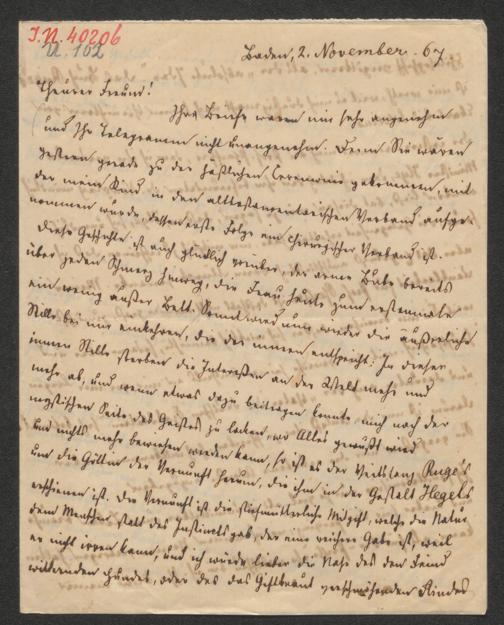 I.N. 40206
U. 162
Baden, 2. November. 67.
Theurer Freund!
Ihre Briefe waren mir sehr angenehm
und Ihr Telegramm nicht unangenehm. Denn Sie wären
gestern gerade zu der häßlichen Ceremonie gekommen, mit
der mein Kind in den alttestamentarischen Verband aufge-
nommen wurde, dessen erste Folge ein chirurgischer Verband ist.
Diese Geschichte ist auch glücklich vorüber, der arme Bube bereits
über jeden Schmerz hinweg, die Frau heute zum erstenmale
ein wenig außer Bett. Somit wird nun wieder die äußerliche
Stille bei mir einkehren, die der innern entspricht. In dieser
innern Stille sterben die Interessen an der Welt mehr und
mehr ab, und wenn etwas dazu beitragen konnte mich nach der
mystischen Seite des Geistes zu locken, wo Alles gewußt wird
und nichts mehr bewiesen werden kann, so ist es der Veitstanz Ruge's
um die Göttin der Vernunft herum, die ihm in der Gestalt Hegels
erschienen ist. Die Vernunft ist die stiefmütterliche Mitgift, welche die Natur
dem Menschen statt des Instincts gab, der eine reichere Gabe ist, weil
er nicht irren kann, und ich würde lieber die Nase des den Feind
witternden Hundes, oder des das Giftkraut verschmähenden Rindes